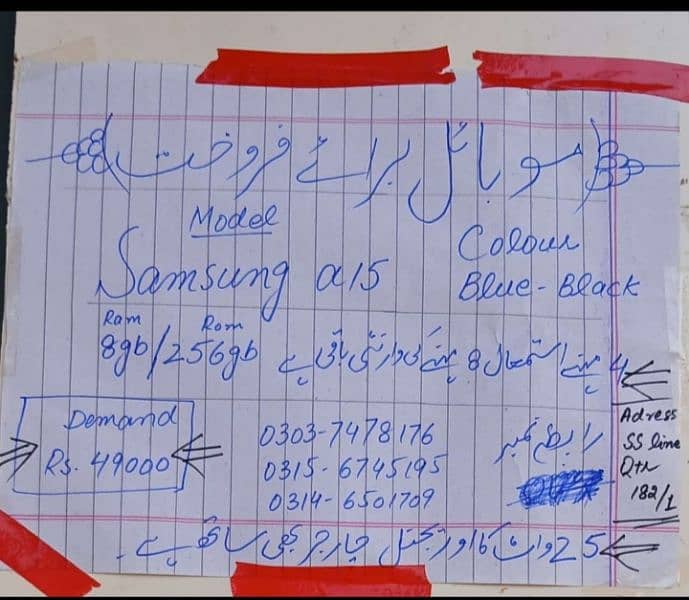 موبائل برائے فروخت
Model
Samsung a15
Colour
Blue-Black
Ram Rom
8gb/256gb
4 مہینے استعمال 8 مہینے کی وارنٹی باقی ہے
Demand
Rs. 49000
رابطہ نمبر
0303-7478176
0315-6745195
0314-6501709
Adress
SS line
Qtr
182/1
25 واٹ کا اوریجنل چارجر بھی ساتھ ہے۔